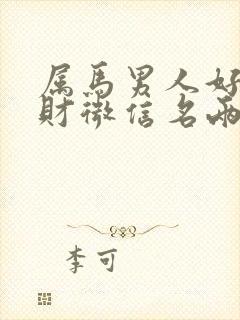 属马男人好
财微信名两
李可